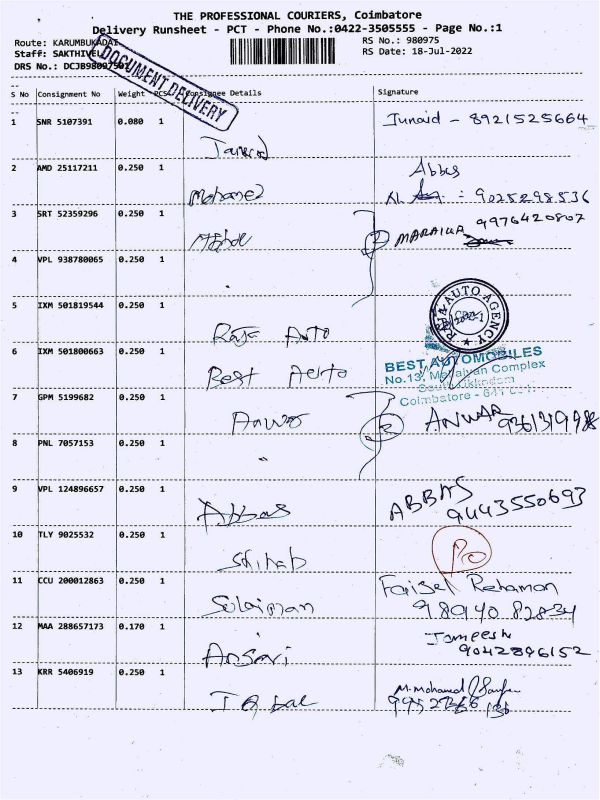 THE PROFESSIONAL COURIERS, Coimbatore
Delivery Runsheet - PCT - Phone No.:0422-3505555 - Page No.:1
Route: KARUMBUKADAI
RS No.: 980975
Staff: SAKTHIVEL
RS Date: 18-Jul-2022
DRS No.: DCJB98097501
DOCUMENT DELIVERY
S No Consignment No Weight PCS Consignee Details Signature
1 SNR 5107391 0.080 1 Junaid - 8921525664
2 AMD 25117211 0.250 1 Abbas
Mohamed : 9025298536
3 SRT 52359296 0.250 1 MARAIKA 9976420807
4 VPL 938780065 0.250 1
5 IXM 501819544 0.250 1
Raja Auto
RAJA AUTO AGENCY
6 IXM 501800663 0.250 1
Best Auto
BEST AUTOMOBILES
No.13, Complex
South Ukkadam
Coimbatore - 641
7 GPM 5199682 0.250 1
Anwar ANWAR 9361319988
8 PNL 7057153 0.250 1
"
9 VPL 124896657 0.250 1
Abbas ABBAS 9443550693
10 TLY 9025532 0.250 1
Shihab
11 CCU 200012863 0.250 1 Faisel Rehaman
Sulaiman 98940 82834
12 MAA 288657173 0.170 1 Jameesh
Ansari 9042896152
13 KRR 5406919 0.250 1 M. Mohamed
Iqbal